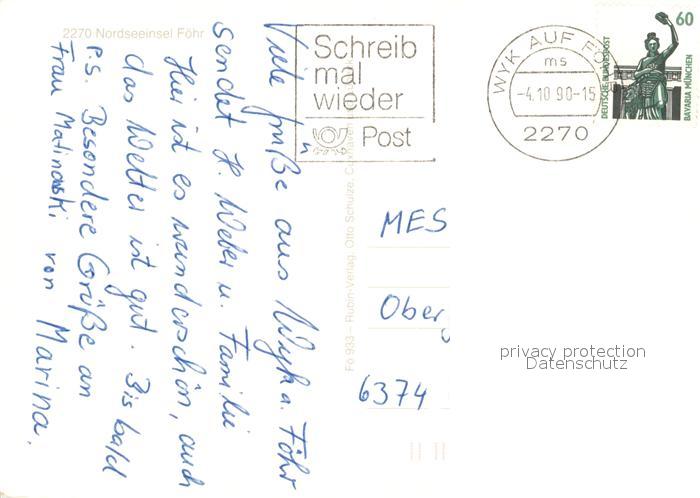 2270 Nordseeinsel Föhr
Viele Grüße aus Wyk a. Föhr
sendet H. Weber u. Familie
Hier ist es wunderschön, auch
das Wetter ist gut. Bis bald
P.S. Besondere Grüße an
Frau Matinowski von Marina.
Fö 933 – Rubin-Verlag, Otto Schulze, Cuxhaven
Schreib
mal
wieder
Post
WYK AUF FÖ
ms
-4.10.90-15
2270
60
DEUTSCHE BUNDESPOST
BAVARIA MÜNCHEN
MES
Ober
6374
privacy protection
Datenschutz